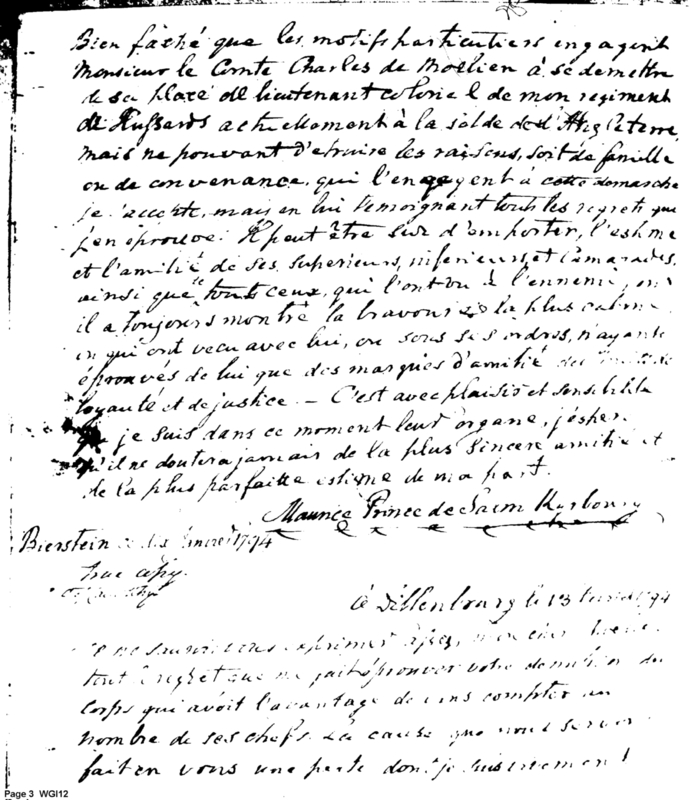 Bien fâché que les motifs particuliers engagent
Monsieur le Comte Charles de Moëlien à se demettre
de sa place de lieutenant colonel de mon regiment
de Hussards actuellement à la solde de l'Angleterre,
mais ne pouvant detruire les raisons, soit de famille
ou de convenance, qui l'engagent à cette demarche
je l'accepte, mais en lui temoignant tous les regrets que
j'en éprouve. Il peut être sur d'emporter, l'estime
et l'amitié de ses superieurs, inferieurs, et camarades,
ainsi que tous ceux, qui l'ont vu à l'ennemi, ou
il a toujours montré la bravoure la plus calme
qui ont vecu avec lui, ou sous ses ordres, n'ayant
éprouvés de lui que des marques d'amitié de
loyauté et de justice. — C'est avec plaisir et sensibilité
que je suis dans ce moment leur organe, j'espere
qu'il ne doutera jamais de la plus sincere amitié et
de la plus parfaite estime de ma part.
Maurice Prince de Salm Kyrbourg
Bierstein 1794
true copy.
à Dillenbourg le 13 1794
exprimer mon cher
tout le regret que me fait éprouver votre demission du
Corps qui avoit l'avantage de vous compter au
nombre de ses chefs. La cause que nous servons
fait en vous une perte dont je suis
Page 3 WGI12